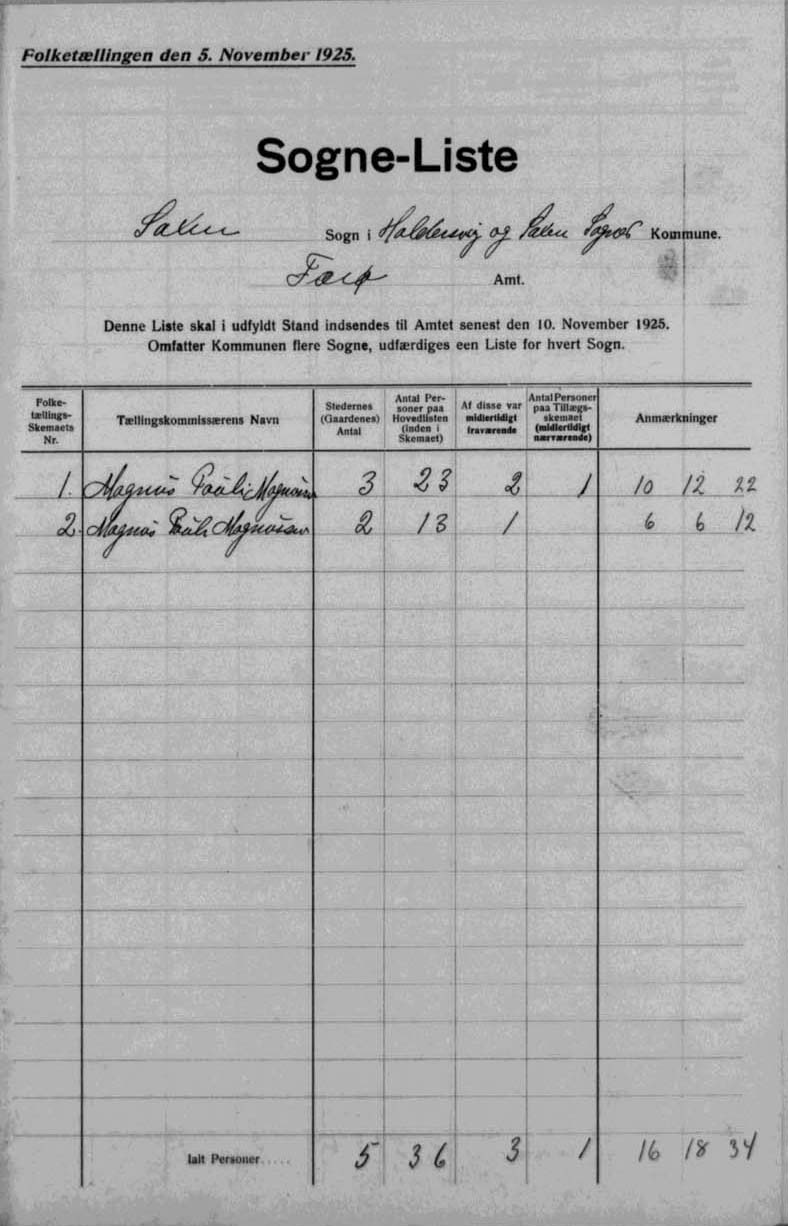 Folketællingen den 5. November 1925.
Sogne-Liste
Saxen Sogn i Haldersvig og Saxen Sognes Kommune.
Færø Amt.
Denne Liste skal i udfyldt Stand indsendes til Amtet senest den 10. November 1925.
Omfatter Kommunen flere Sogne, udfærdiges een Liste for hvert Sogn.
Folke-
tællings-
Skemaets
Nr.
Tællingskommissærens Navn
Stedernes
(Gaardenes)
Antal
Antal Per-
soner paa
Hovedlisten
(inden i
Skemaet)
Af disse var
midlertidigt
fraværende
Antal Personer
paa Tillægs-
skemaet
(midlertidigt
nærværende)
Anmærkninger
1. Magnus Pauli Magnussen 3 23 2 1 10 12 22
2. Magnus Pauli Magnussen 2 13 1 6 6 12
Ialt Personer..... 5 36 3 1 16 18 34